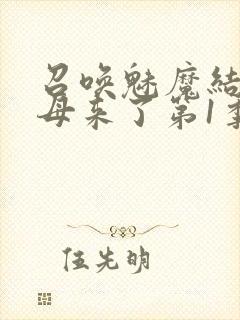 召唤魅魔结
母来了第1季
伍先明